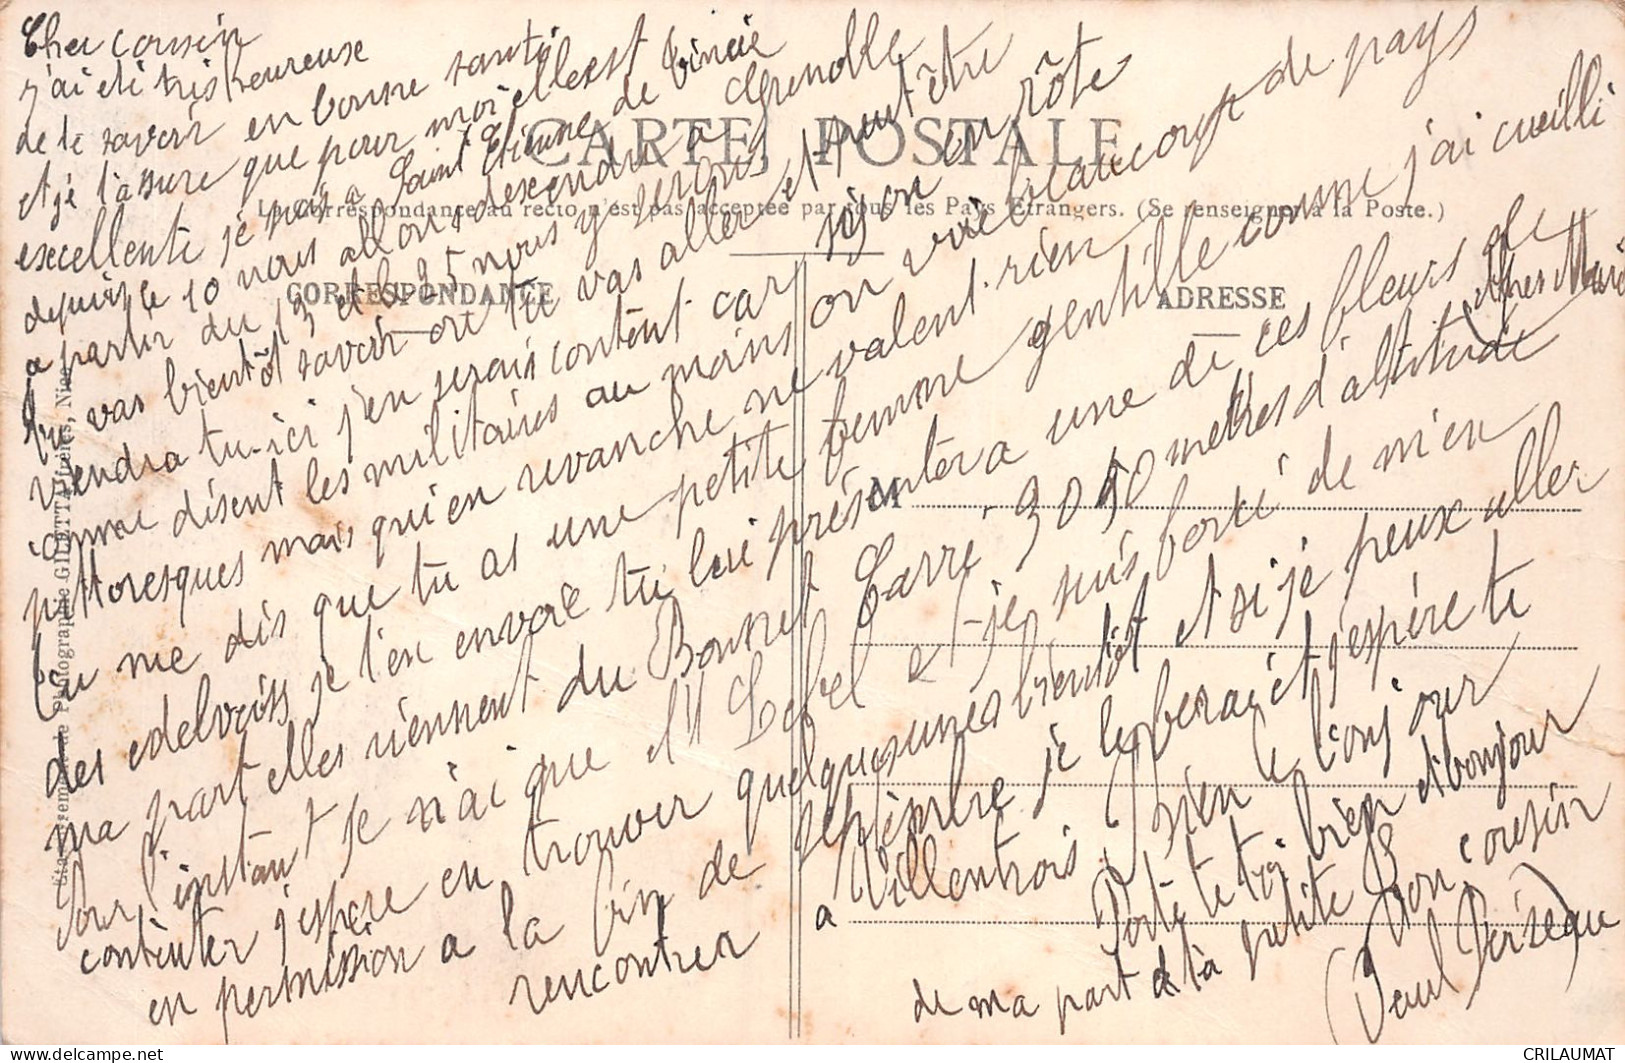 CARTE POSTALE
La Correspondance au recto n'est pas acceptée par tous les Pays Etrangers. (Se renseigner à la Poste.)
CORRESPONDANCE
ADRESSE
M
Etablissements de Photographie GILETTA Frères, Nice
Cher cousin
j'ai été très heureuse
de te savoir en bonne santé
et je t'assure que pour moi elle est
excellente je suis à Saint Etienne de Tinée
depuis le 10 nous allons descendre a Grenoble
a partir du 13 et le 25 nous y serons
tu vas bientôt savoir ou tu vas aller et peut être
viendra tu-ici j'en serais content car si on en rôte
comme disent les militaires au moins on voie beaucoup de pays
pittoresques mais qui en revanche ne valent rien
Tu me dis que tu as une petite femme gentille comme j'ai cueilli
des edelveiss je t'en envoie tu lui présentera une de ces fleurs de
ma part elles viennent du Bonnet Carré 3050 metres d'altitude
Pour l'instant je n'ai que et je suis forcé de m'en
contenter j'espère en trouver quelques unes bientôt et si je peux aller
en permission a la fin de septembre je le ferai et j'espère te
rencontrer a Villentrois
bien le bonjour
Porte te toi bien et bonjour
de ma part à ta petite
Ton cousin
(Paul Poizeau)